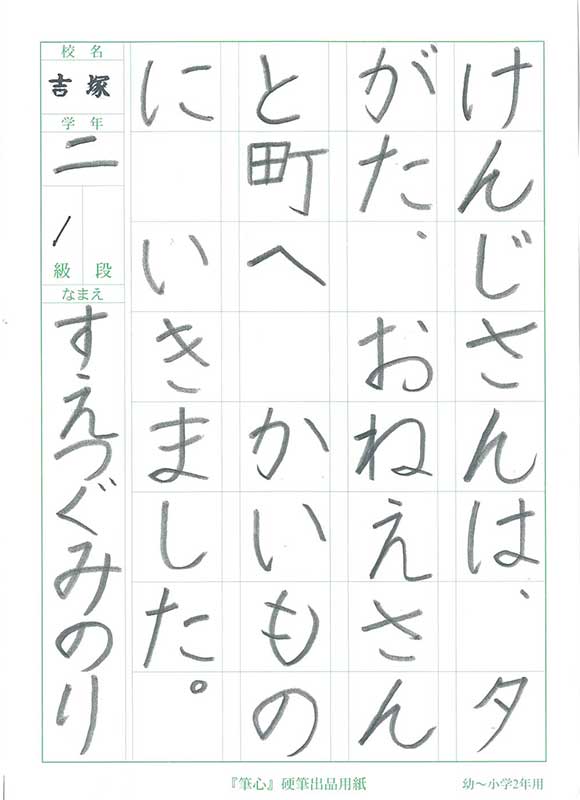 けんじさんは、夕
がた、おねえさん
と町へ かいもの
に いきました。
校名
吉塚
学年
二
級 段
/
なまえ
すえつぐみのり
『筆心』硬筆出品用紙
幼〜小学2年用